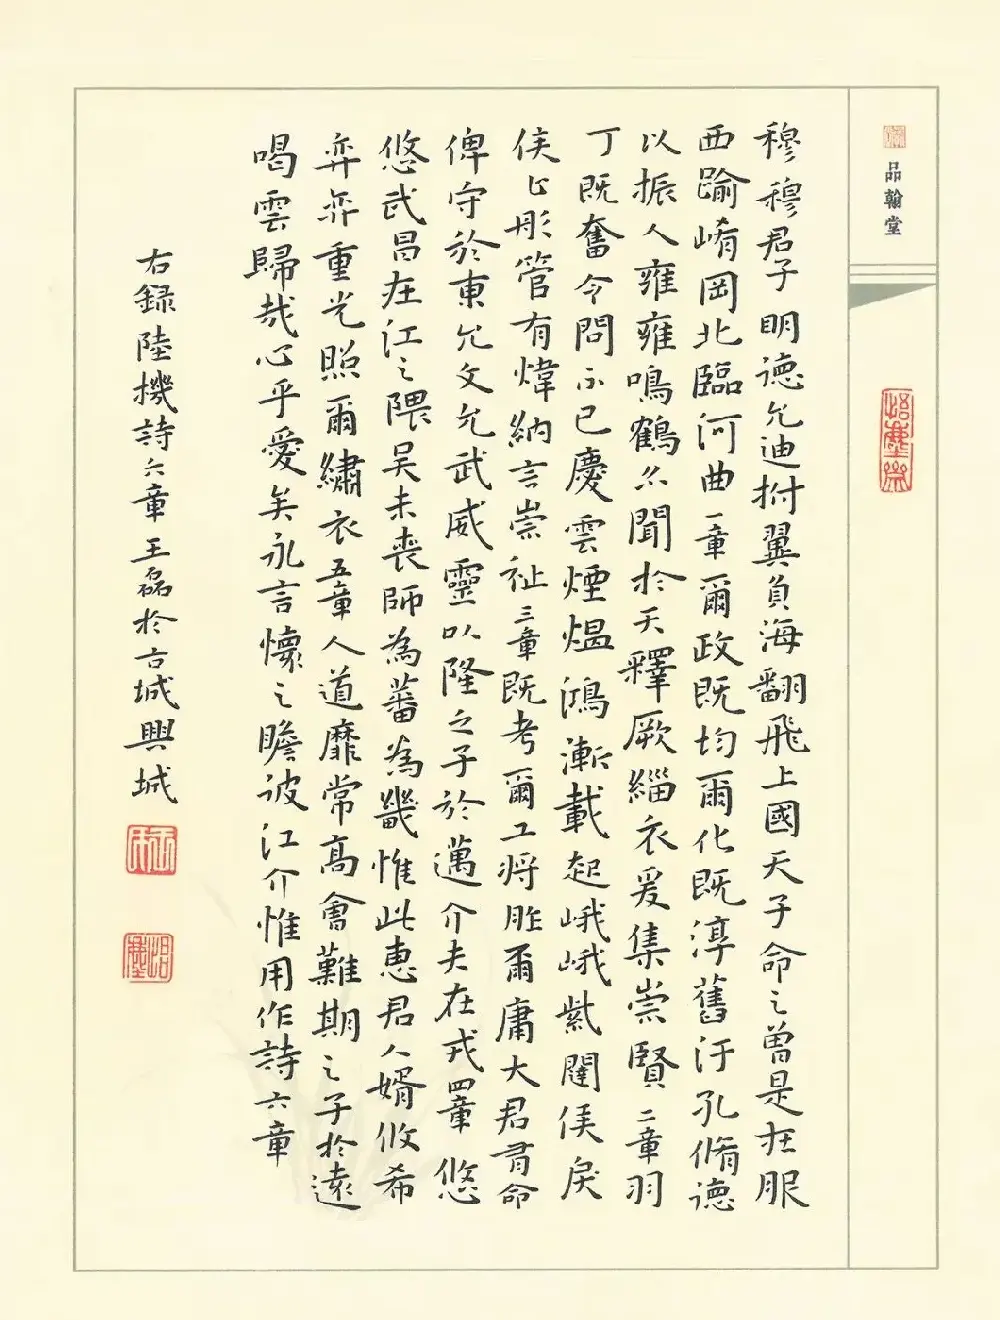 品翰堂
穆穆君子明德允迪拊翼負海翻飛上國天子命之曾是在服
西踰崤岡北臨河曲一章爾政既均爾化既淳舊汙孔脩德
以振人雍雍鳴鶴亦聞於天釋厥緇衣爰集崇賢二章羽
丁既奮令問不已慶雲煙熅鴻漸載起峨峨紫闥侯戾
侯止彤管有煒納言崇祉三章既考爾工將胙爾庸大君有命
俾守於東允文允武威靈以隆之子於邁介夫在戎四章悠
悠武昌在江之隈吳未喪師為蕃為畿惟此惠君人婿攸希
弈弈重光照爾繡衣五章人道靡常高會難期之子於遠
喝雲歸哉心乎愛矣永言懷之瞻彼江介惟用作詩六章
右録陸機詩六章王磊於古城興城